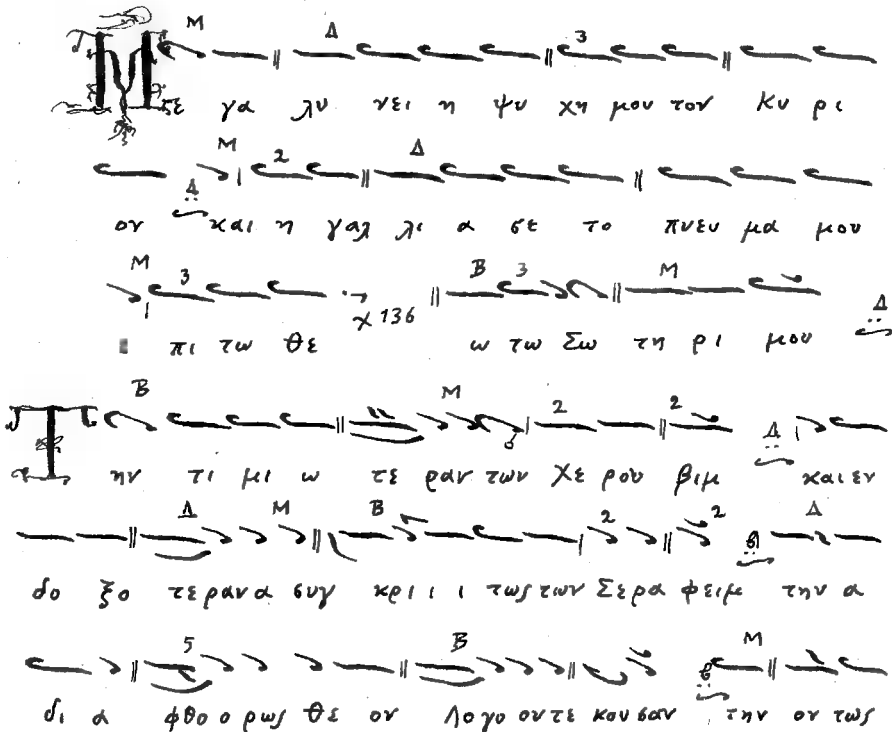 Μ Δ 3
Με γα λυ νει η ψυ χη μου τον Κυ ρι
Μ 2 Δ
ον Δ και η γαλ λι α σε το πνευ μα μου
Μ 3 Β 3 Μ
πι τω θε χ 136 ω τω Σω τη ρι μου Δ
Β Μ 2 2
Την τι μι ω τε ραν των Χε ρου βιμ Δ και εν
Δ Μ Β 2 2 Δ
δο ξο τε ραν α συγ κρι ι ι τως των Σε ρα φειμ την α
5 Β Μ
δι α φθο ο ρως θε ον Λο γο ον τε κου σαν την ον τως